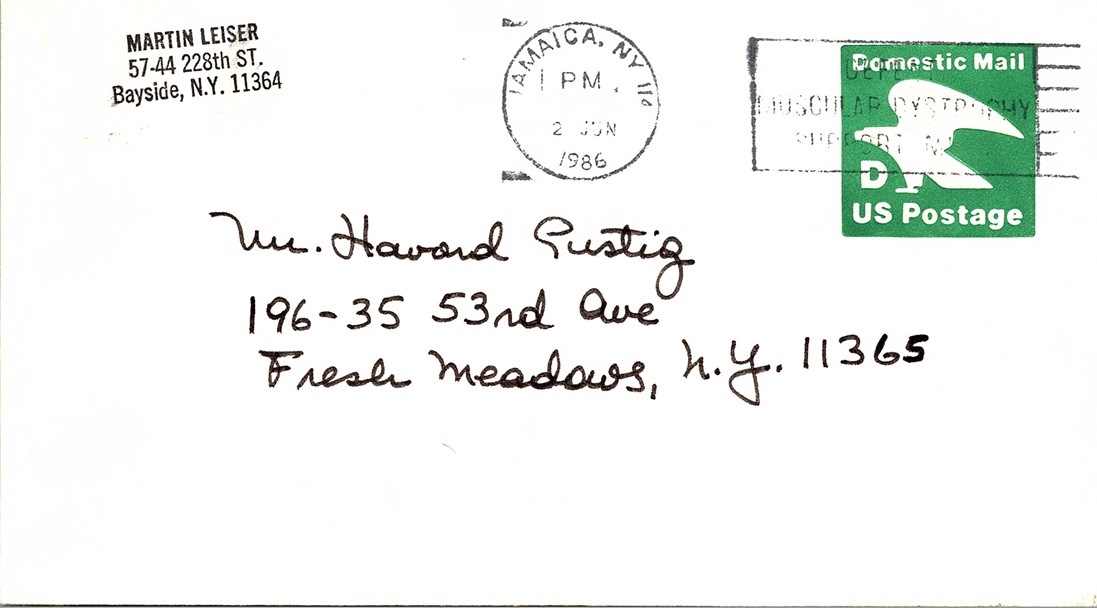 MARTIN LEISER
57-44 228th ST.
Bayside, N.Y. 11364
JAMAICA, NY 114
1 PM
2 JUN
1986
Domestic Mail
MUSCULAR DYSTROPHY
SUPPORT
D
US Postage
Mr. Havard Gustig
196-35 53rd Ave
Fresh Meadows, N.Y. 11365